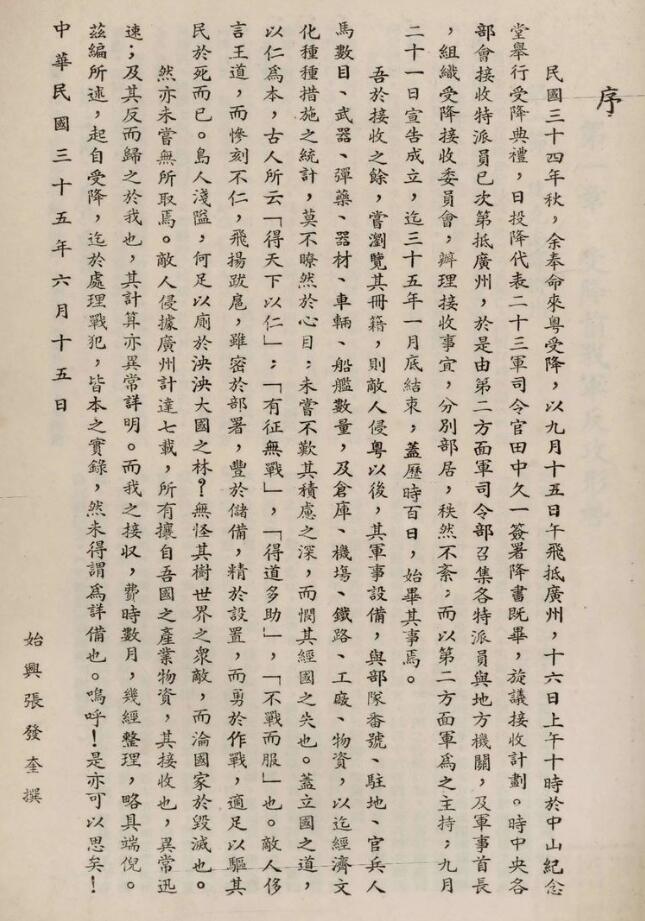 序
民國三十四年秋，余奉命來粵受降，以九月十五日午飛抵廣州，十六日上午十時於中山紀念
堂舉行受降典禮，日投降代表二十三軍司令官田中久一簽署降書既畢，旋議接收計劃。時中央各
部會接收特派員已次第抵廣州，於是由第二方面軍司令部召集各特派員與地方機關，及軍事首長
，組織受降接收委員會，辦理接收事宜，分別部居，秩然不紊，而以第二方面軍為之主持；九月
二十一日宣告成立，迄三十五年一月底結束，蓋歷時百日，始畢其事焉。
吾於接收之餘，嘗瀏覽其冊籍，則敵人侵粵以後，其軍事設備，與部隊番號、駐地、官兵人
馬數目、武器、彈藥、器材、車輛、船艦數量，及倉庫、機塲、鐵路、工廠、物資，以迄經濟文
化種種措施之統計，莫不瞭然於心目；未嘗不歎其積慮之深，而憫其經國之失也。蓋立國之道，
以仁爲本，古人所云「得天下以仁」；「有征無戰」，「得道多助」，「不戰而服」也。敵人侈
言王道，而慘刻不仁，飛揚跋扈，雖密於部署，豐於儲備，精於設置，而勇於作戰，適足以驅其
民於死而已。島人淺隘，何足以廁於泱泱大國之林？無怪其樹世界之衆敵，而淪國家於毀滅也。
然亦未嘗無所取焉。敵人侵據廣州計達七載，所有攘自吾國之產業物資，其接收也，異常迅
速；及其反而歸之於我也，其計算亦異常詳明。而我之接収，費時數月，幾經整理，略具端倪。
茲編所述，起自受降，迄於處理戰犯，皆本之實錄，然未得謂爲詳備也。嗚呼！是亦可以思矣！
中華民國三十五年六月十五日
始興張發奎撰